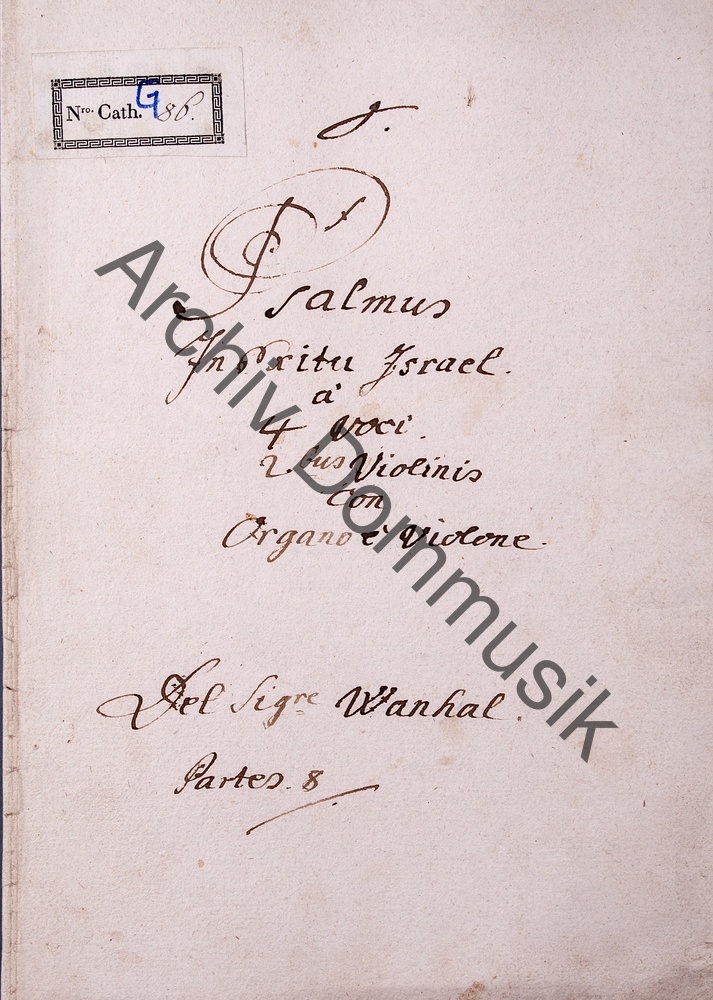 Nro. Cath. G 86.
J.
Psalmus
In Exitu Israel.
a
4 Voci.
2.bus Violinis
Con
Organo è Violone.
Del Sigre Wanhal.
Partes. 8
Archiv Dommusik